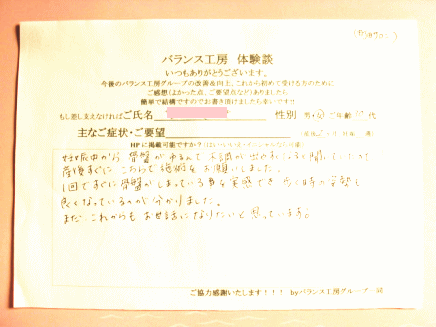 バランス工房 体験談
いつもありがとうございます。
今後のバランス工房グループの改善&向上、これから初めて受ける方のために
ご感想(よかった点、ご要望点など)ありましたら
簡単で結構ですのでお書き頂けましたら幸いです!!
もし差し支えなければご氏名 性別 男・女 ご年齢 代
主なご症状・ご要望
HPに掲載可能ですか?
妊娠中から骨盤がゆるんで
産後すぐに こちらで施術をお願いしました。
1回ですぐに骨盤がしまっている事を実感でき 歩く時の姿勢も
良くなっているのが分かりました。
まだ、これからも お世話になりたいと思っています。
ご協力感謝いたします!!! byバランス工房グループ一同